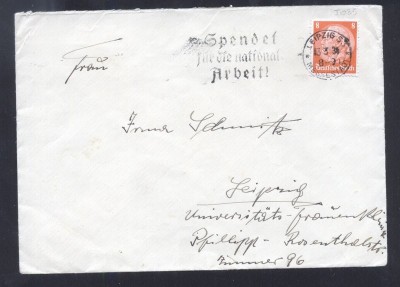 Spendet
für die nationale
Arbeit!
LEIPZIG
8
8
Deutsches Reich
Frau
Irma Schmitz
Leipzig
Universitäts-Frauenklinik
Phillipp-Rosenthalstr.
Zimmer 96